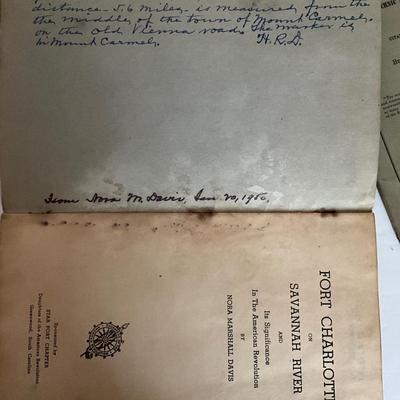 distance - 5.6 miles - is measured from the
the middle of the town of Mount Carmel,
on the Old Vienna road. The marker is
in Mount Carmel.
H.R.D.
From Nora M. Davis, Jan 20, 1950.
FORT CHARLOTTE
ON
SAVANNAH RIVER
AND
Its Significance
In The American Revolution
BY
NORA MARSHALL DAVIS
Sponsored by
STAR FORT CHAPTER
Daughters of the American Revolution
Greenwood, South Carolina